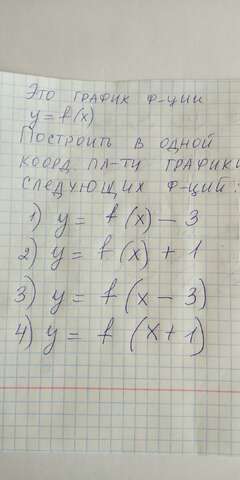 Это график ф-ции
y = f(x)
Построить в одной
коорд. пл-ти графики
следующих ф-ций:
1) y = f(x) - 3
2) y = f(x) + 1
3) y = f(x - 3)
4) y = f(x + 1)